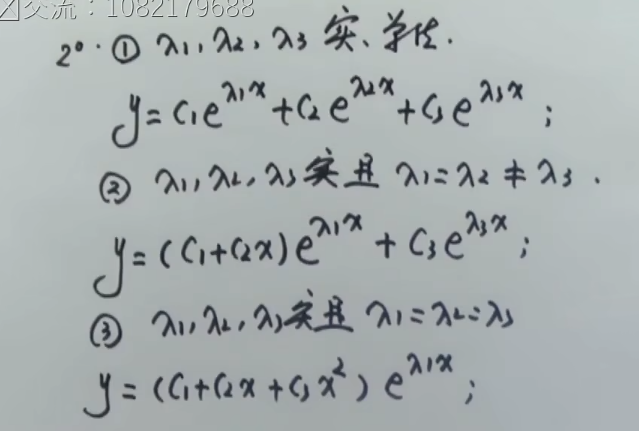 交流：1082179688
2°. ① λ1, λ2, λ3 实、单值.
y = C1e^{λ1x} + C2e^{λ2x} + C3e^{λ3x} ;
② λ1, λ2, λ3 实且 λ1 = λ2 ≠ λ3 .
y = (C1 + C2x)e^{λ1x} + C3e^{λ3x} ;
③ λ1, λ2, λ3 实且 λ1 = λ2 = λ3
y = (C1 + C2x + C3x²) e^{λ1x} ;